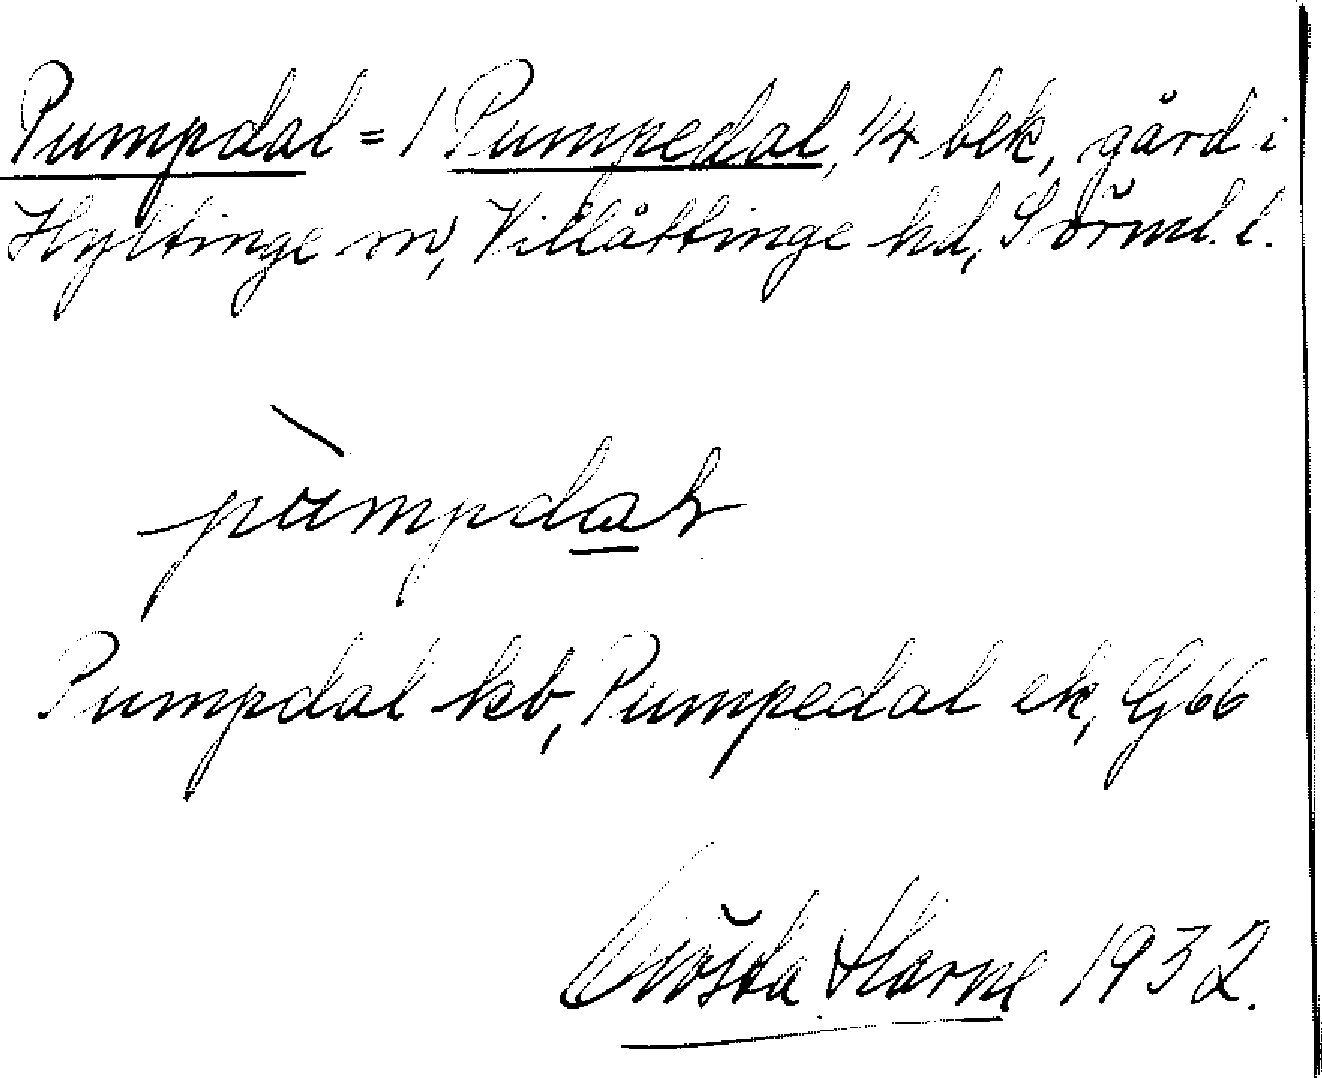 Pumpdal = 1 Pumpedal, 1/4 bek, gård i
Hyltinge sn, Villåttinge hd, Sörml. l.
pùmpdaḷ
Pumpdal kb, Pumpedal ek, G66
Gösta Harne 1932.